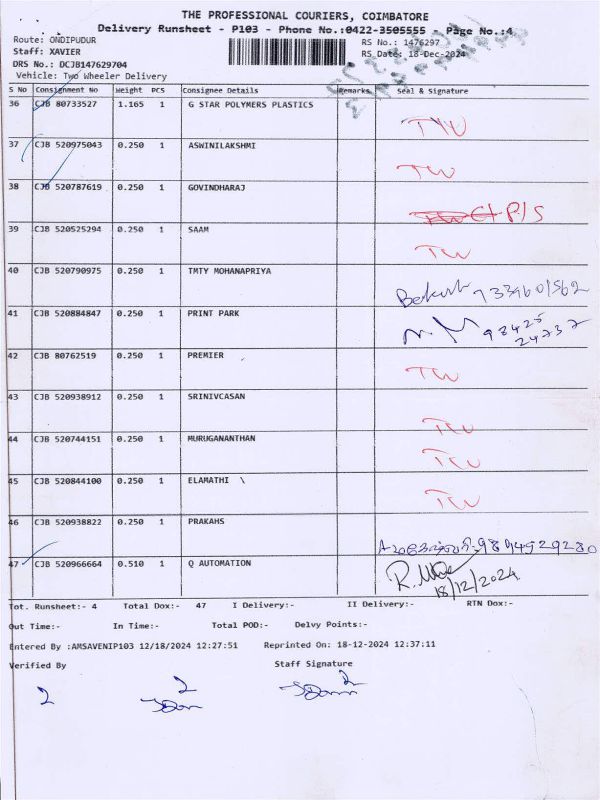 THE PROFESSIONAL COURIERS, COIMBATORE
Delivery Runsheet - P103 - Phone No.:0422-3505555 - Page No.:4
Route: ONDIPUDUR
RS No.: 1476297
Staff: XAVIER
RS Date: 18-Dec-2024
DRS No.: DCJB147629704
Vehicle: Two Wheeler Delivery
S No Consignment No Weight PCS Consignee Details Remarks Seal & Signature
36 CJB 80733527 1.165 1 G STAR POLYMERS PLASTICS TW
37 CJB 520975043 0.250 1 ASWINILAKSHMI TW
38 CJB 520787619 0.250 1 GOVINDHARAJ P/S
39 CJB 520525294 0.250 1 SAAM TW
40 CJB 520790975 0.250 1 TMTY MOHANAPRIYA
41 CJB 520884847 0.250 1 PRINT PARK 98425
24737
42 CJB 80762519 0.250 1 PREMIER TW
43 CJB 520938912 0.250 1 SRINIVCASAN TW
44 CJB 520744151 0.250 1 MURUGANANTHAN TW
45 CJB 520844100 0.250 1 ELAMATHI \ TW
46 CJB 520938822 0.250 1 PRAKAHS 9894929280
47 CJB 520966664 0.510 1 Q AUTOMATION
18/12/2024
Tot. Runsheet:- 4 Total Dox:- 47 I Delivery:- II Delivery:- RTN Dox:-
Out Time:- In Time:- Total POD:- Delvy Points:-
Entered By :AMSAVENIP103 12/18/2024 12:27:51 Reprinted On: 18-12-2024 12:37:11
Verified By Staff Signature